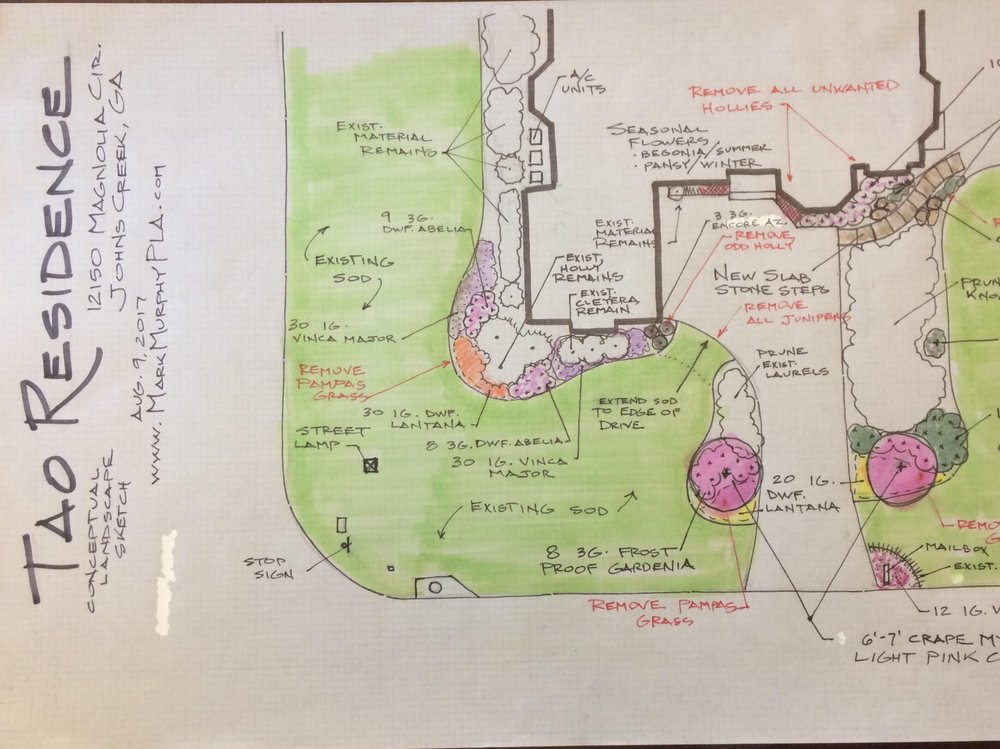 TAO RESIDENCE
12150 MAGNOLIA CIR.
JOHNS CREEK, GA
CONCEPTUAL
LANDSCAPE
SKETCH
AUG. 9, 2017
www.MARKMURPHYPLA.com
A/C
UNITS
EXIST.
MATERIAL
REMAINS
REMOVE ALL UNWANTED
HOLLIES
SEASONAL
FLOWERS
• BEGONIA/SUMMER
• PANSY/WINTER
9 3G.
DWF. ABELIA
EXISTING
SOD
EXIST.
MATERIAL
REMAINS
3 3G.
ENCORE AZ.
REMOVE
ODD HOLLY
EXIST.
HOLLY
REMAINS
EXIST.
CLEYERA
REMAIN
NEW SLAB
STONE STEPS
REMOVE
ALL JUNIPERS
PRUN
KNO
30 1G.
VINCA MAJOR
REMOVE
PAMPAS
GRASS
PRUNE
EXIST.
LAURELS
30 1G. DWF.
LANTANA
EXTEND SOD
TO EDGE OF
DRIVE
STREET
LAMP
8 3G. DWF. ABELIA
30 1G. VINCA
MAJOR
20 1G.
DWF.
LANTANA
EXISTING SOD
8 3G. FROST
PROOF GARDENIA
REMO
G
MAILBOX
EXIST.
STOP
SIGN
REMOVE PAMPAS
GRASS
12 1G. V
6'-7' CRAPE MY
LIGHT PINK C